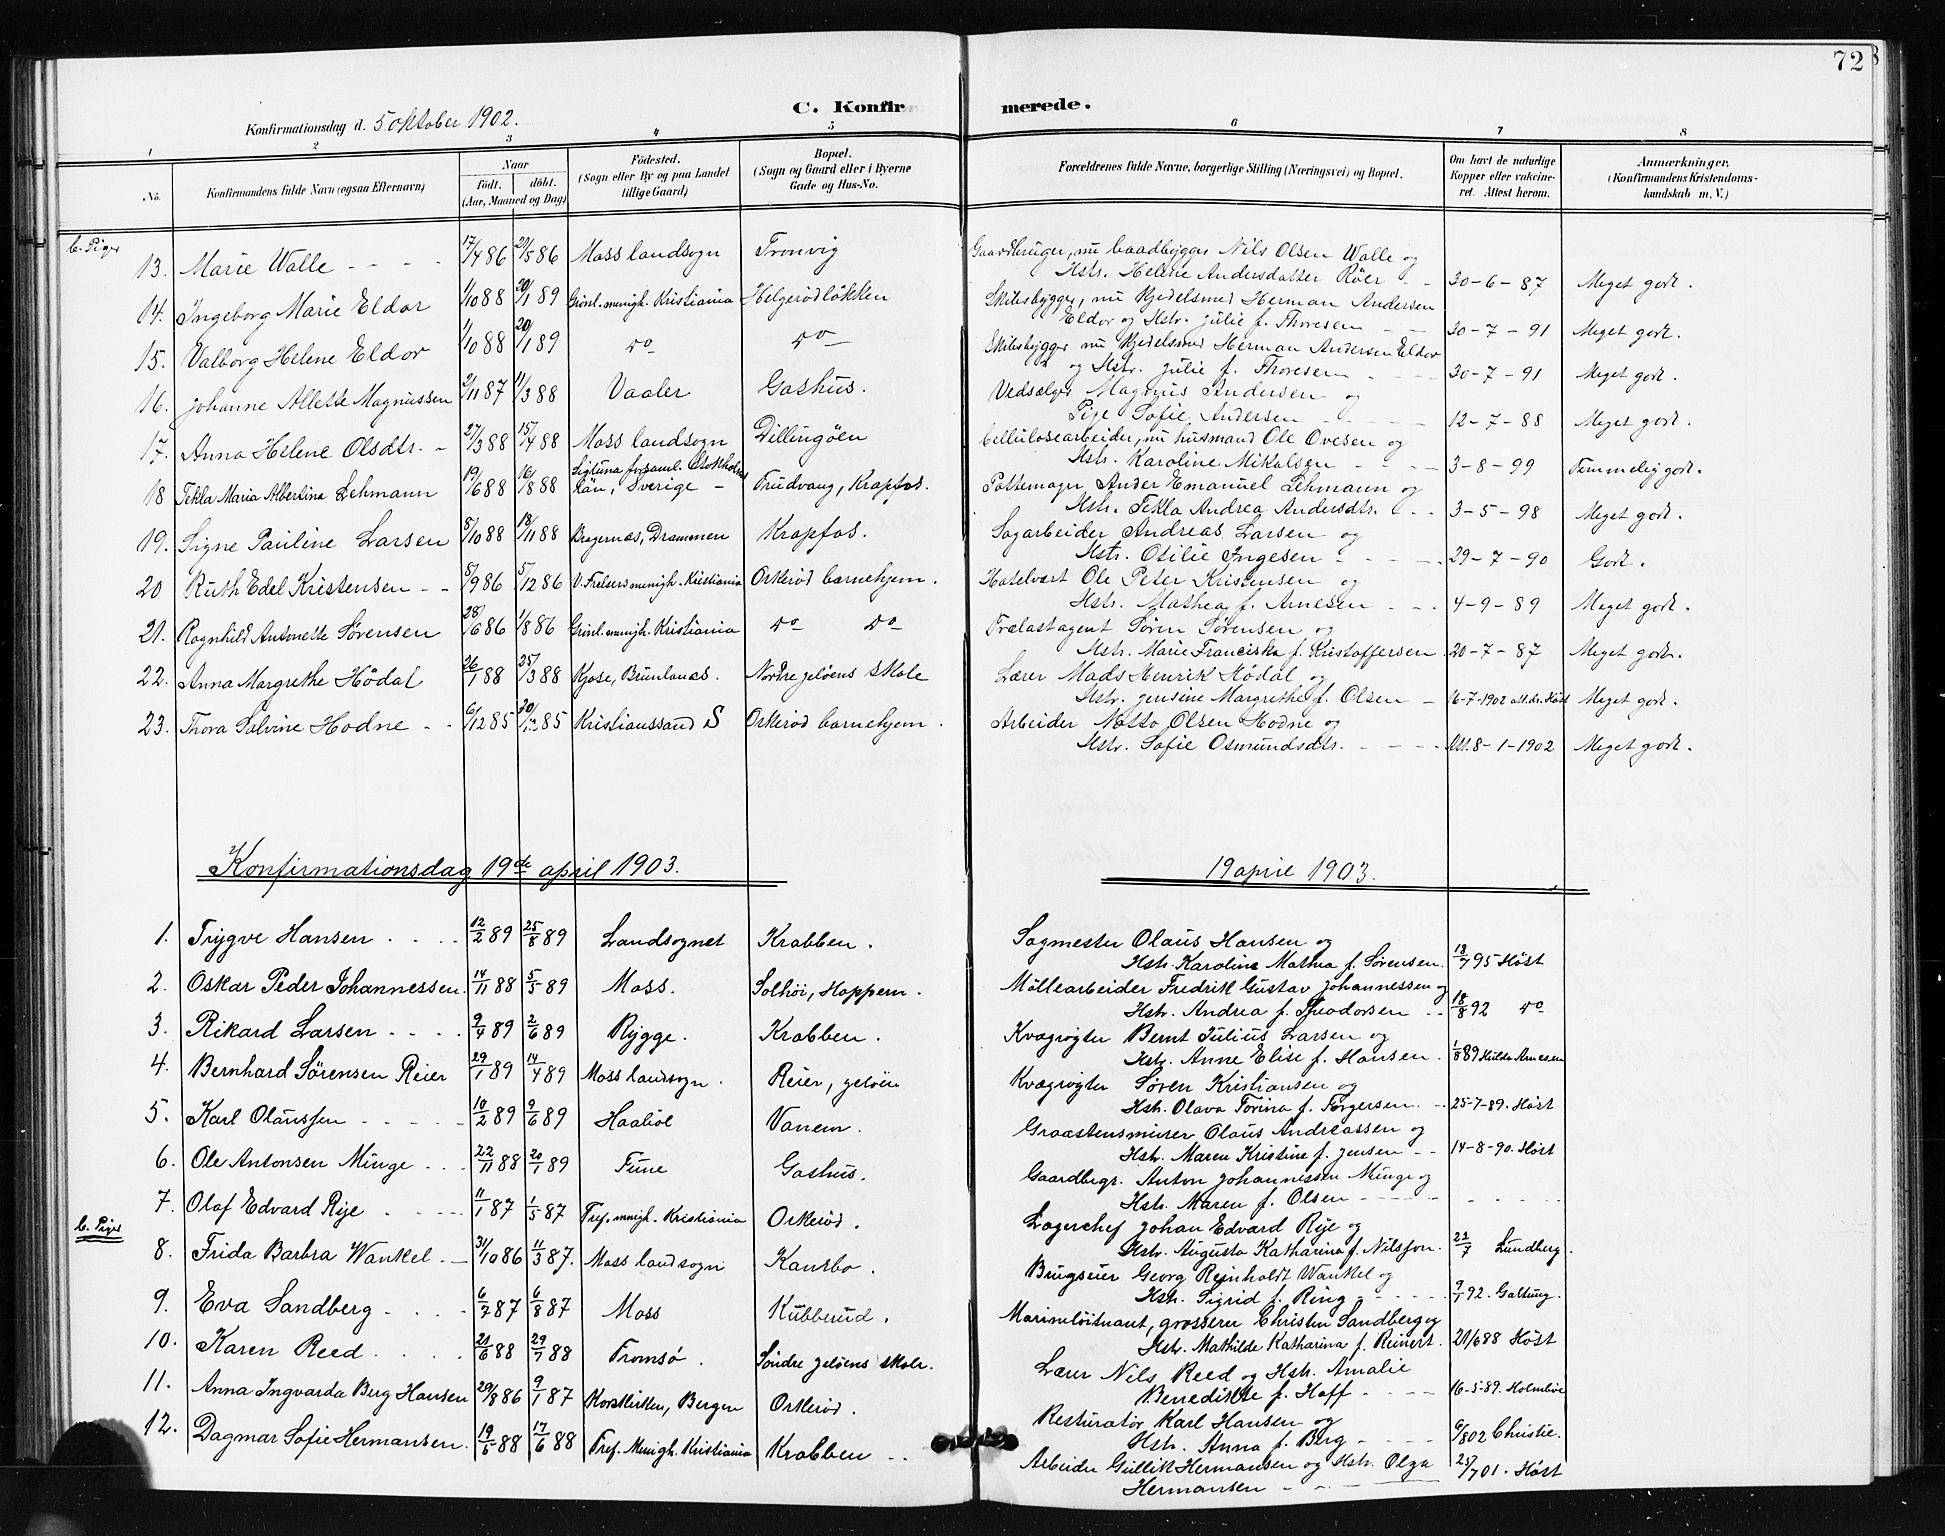 72
C. Konfirmerede.
Konfirmationsdag d. 5 oktober 1902.
1 2 3 4 5 6 7 8
No.
Konfirmandens fulde Navn (ogsaa Efternavn)
Naar
født. døbt.
(Aar, Maaned og Dag)
Fødested.
(Sogn eller By og paa Landet
tillige Gaard)
Bopæl.
(Sogn og Gaard eller i Byerne
Gade og Hus-No.
Forældrenes fulde Navne, borgerlige Stilling (Næringsvei) og Bopæl.
Om havt de naturlige
Kopper eller vakcine-
ret. Attest herom.
Anmærkninger.
(Konfirmandens Kristendoms-
kundskab m. V.)
b. Piger
13. Marie Walle - - - - 17/4 86 21/5 86 Moss landsogn Tronvig Gaardbruger, nu baadbygger Nils Olsen Walle og
Hstr. Helene Andersdatter Røer - - 30-6-87 Meget godt.
14. Ingeborg Marie Eldor 1/10 88 20/1 89 Grønl. menigh. Kristiania Helgerødløkken Skibsbygger, nu Kjedelsmed Herman Andersen
Eldor og Hstr. Julie f. Thoresen - - 30-7-91 Meget godt.
15. Valborg Helene Eldor 1/10 88 20/1 89 do do Skibsbygger nu Kjedelsmed Herman Andersen Eldor
og Hstr. Julie f. Thoresen - - - 30-7-91 Meget godt.
16. Johanne Alette Magnussen 2/11 87 11/3 88 Vaaler Gashus. Vedsælger Magnus Andersen og
Pige Sofie Andersen - - - - 12-7-88 Meget godt.
17. Anna Helene Olsdtr. - 27/3 88 15/4 88 Moss landsogn Dillingøen Cellulosearbeider, nu husmand Ole Ovesen og
Hstr. Karoline Mikalsen - - - - 3-8-99 Temmelig godt.
18 Tekla Maria Albertina Lehmann 19/6 88 16/8 88 Sigtuna forsaml. Stokholms
län, Sverige - Trudvang, Krapfos. Pottemager Ander Emanuel Lehmann og
Hstr. Tekla Andrea Andersdtr. - - 3-5-98 Meget godt.
19. Signe Pauline Larsen 8/10 88 18/11 88 Bragernæs, Drammen Krapfos. Sagarbeider Andreas Larsen og
Hstr. Otilie Ingesen - - - - 29-7-90 Godt.
20 Ruth Edel Kristensen - - 5/9 86 5/12 86 V. Frelsersmenigh. Kristiania Orkerød barnehjem. Hotelvært Ole Peter Kristensen og
Hstr. Mathea f. Arnesen - - - 4-9-89 Meget godt.
21. Ragnhild Antonette Sørensen 28/6 86 1/8 86 Grønl. menigh. Kristiania do do Trælastagent Søren Sørensen og
Hstr. Marie Franciska f. Kristoffersen 20-7-87 Meget godt.
22. Anna Margrethe Hødal 26/1 88 25/3 88 Kjose, Brunlanæs. Nordre jeløens skole Lærer Mads Henrik Hødal og
Hstr. Jensine Margrethe f. Olsen - 16-7-1902 att. dr. Høst Meget godt.
23. Thora Salvine Hodne - - 6/12 85 85 Kristianssand S Orkerød barnehjem. Arbeider Olsen Hodne og
Hstr. Sofie Osmundsdtr. - - - - Att. 8-1-1902 Meget godt.
Konfirmationsdag 19de april 1903. 19 april 1903.
1. Trygve Hansen . . . . 12/2 89 25/8 89 Landsognet Krabben. Sagmester Olaus Hansen og
Hstr. Karoline Mathea f. Sørensen. 13/7 95 Høst
2. Oskar Peder Johannessen. 14/11 88 5/5 89 Moss. Solhøi, Hoppern. Møllearbeider Fredrik Gustav Johannessen og
Hstr. Andrea f. Theodorsen - - 18/8 92 do
3. Rikard Larsen . . . . 9/4 89 2/6 89 Rygge. Krabben. Kvægrøgter Bernt Julius Larsen og
Hstr. Anne Elise f. Hansen. 1/8 89 Hulda Arnesen
4. Bernhard Sørensen Reier 29/1 89 14/4 89 Moss landsogn. Reier, jeløen Kvægrøgter Søren Kristiansen og
Hstr. Olava Torina f. Torgersen. - 25-7-89. Høst
5. Karl Olaussen - - - - - 10/2 89 9/6 89 Haabøl Vanem. Graastensmurer Olaus Andreassen og
Hstr. Maren Kristine f. Jensen - - 14-8-90. Høst
6. Ole Antonsen Minge . . . 22/11 88 20/1 89 Tune Gashus. Gaardbegr. Anton Johannessen Minge og
Hstr. Maren f. Olsen - - - - - -
7. Olaf Edvard Rye . - - - - 11/1 87 1/5 87 Tref. menigh. Kristiania Orkerød. Lagerchef Johan Edvard Rye og
Hstr. Augusta Katharina f. Nilsson. 21/7 Lundberg.
b. Piger
8. Frida Barbra Wankel. - 31/10 86 11/3 87. Moss landsogn Kansbo. Brugseier Georg Reinholdt Wankel og
Hstr. Sigrid f. Ring - - - - - 9/1 92. Galtung.
9. Eva Sandberg . . . . 6/7 87 6/8 87 Moss Kubberud. Marineløitnant, grosserer Christen Sandberg og
Hstr. Mathilde Katharina f. Reinert. 21/6 88 Høst
10. Karen Reed . . . . . 21/6 88 29/7 88 Tromsø. Søndre jeløens skole. Lærer Nils Reed og Hstr. Amalie
Benedikte f. Hoff - - - - 16-5-89. Holmboe
11. Anna Ingvarda Berg Hansen 29/8 86 9/1 87 Korskirken, Bergen Orkerød. Resturatør Karl Hansen og
Hstr. Anna f. Berg - - - - 6/8 02 Christie.
12. Dagmar Sofie Hermansen. 19/5 88 17/6 88 Tref. Menigh. Kristiania Krabben - - Arbeider Gullik Hermansen og Hstr. Olga
Hermansen - - - - 25/7 01. Høst